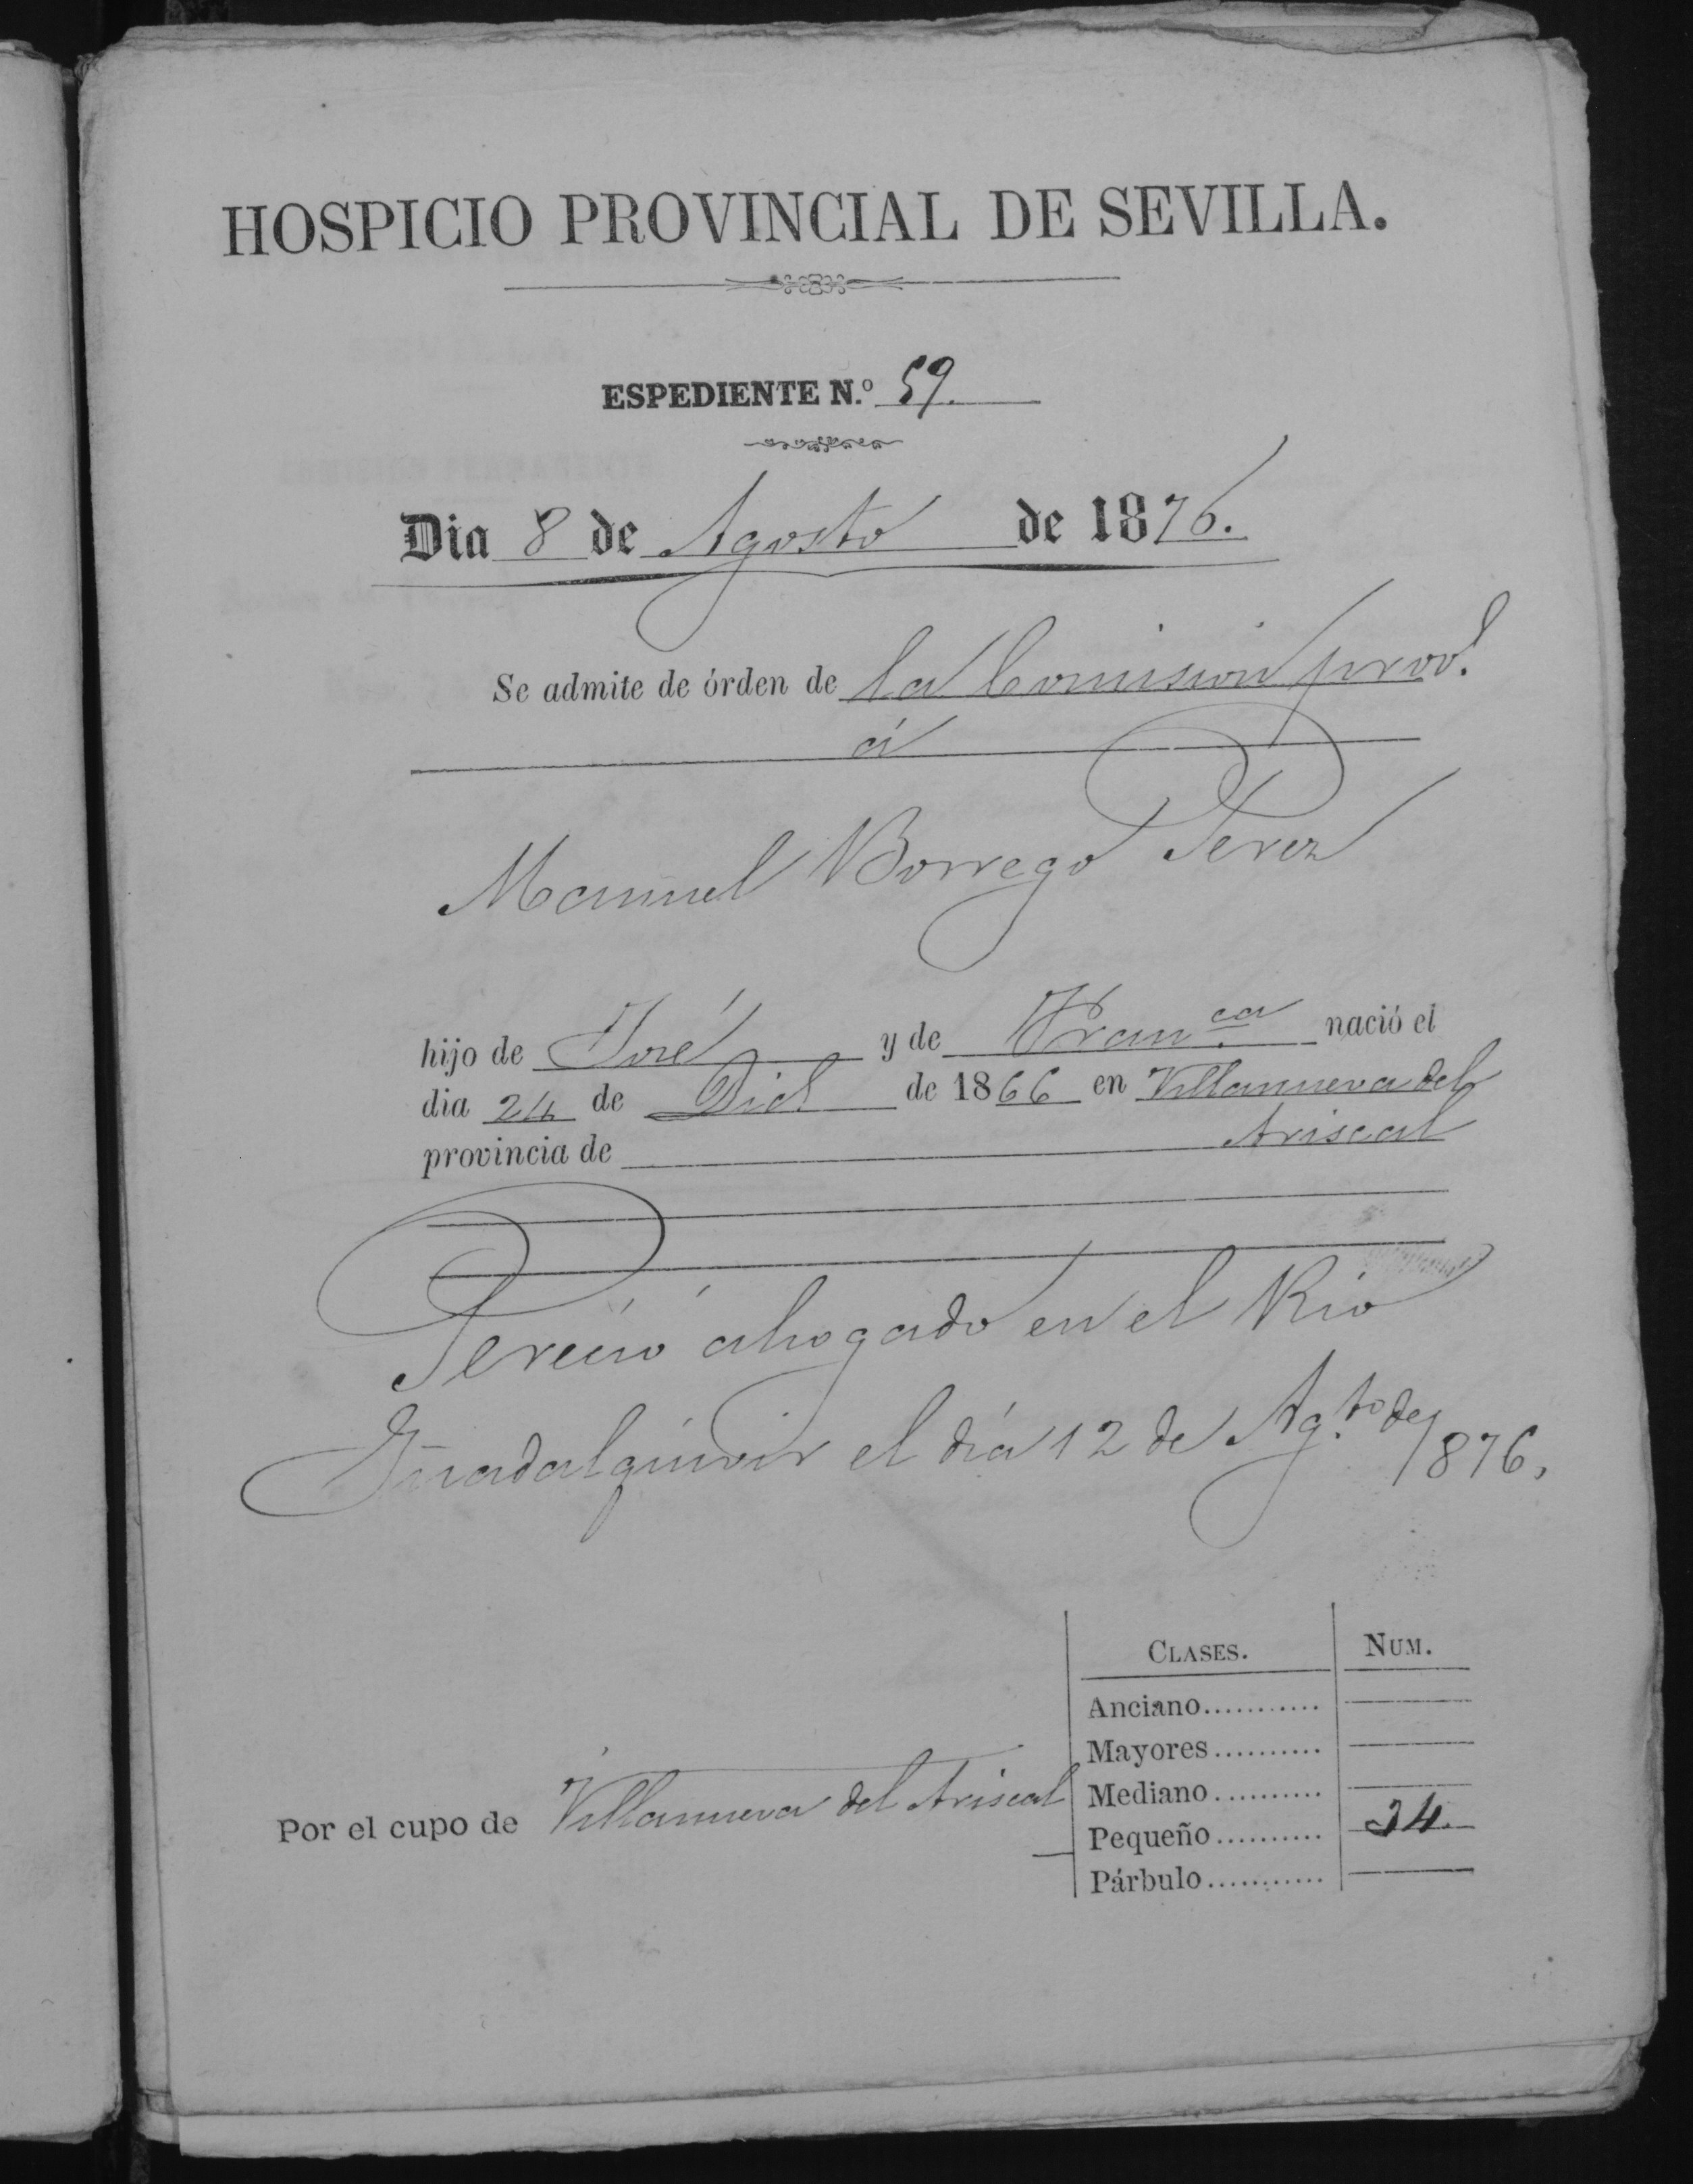 HOSPICIO PROVINCIAL DE SEVILLA.
ESPEDIENTE N.º 59.
Dia 8 de Agosto de 1876.
Se admite de órden de la Comision prov.l
á
Manuel Borrego Perez
hijo de José y de Fran.ca nació el
dia 24 de Dic.e de 1866 en Villanueva del
provincia de Ariscal
Pereció ahogado en el Rio
Guadalquivir el día 12 de Ag.to de 1876,
CLASES. NUM.
Anciano...........
Mayores..........
Mediano..........
Por el cupo de Villanueva del Ariscal
Pequeño.......... 34.
Párbulo...........